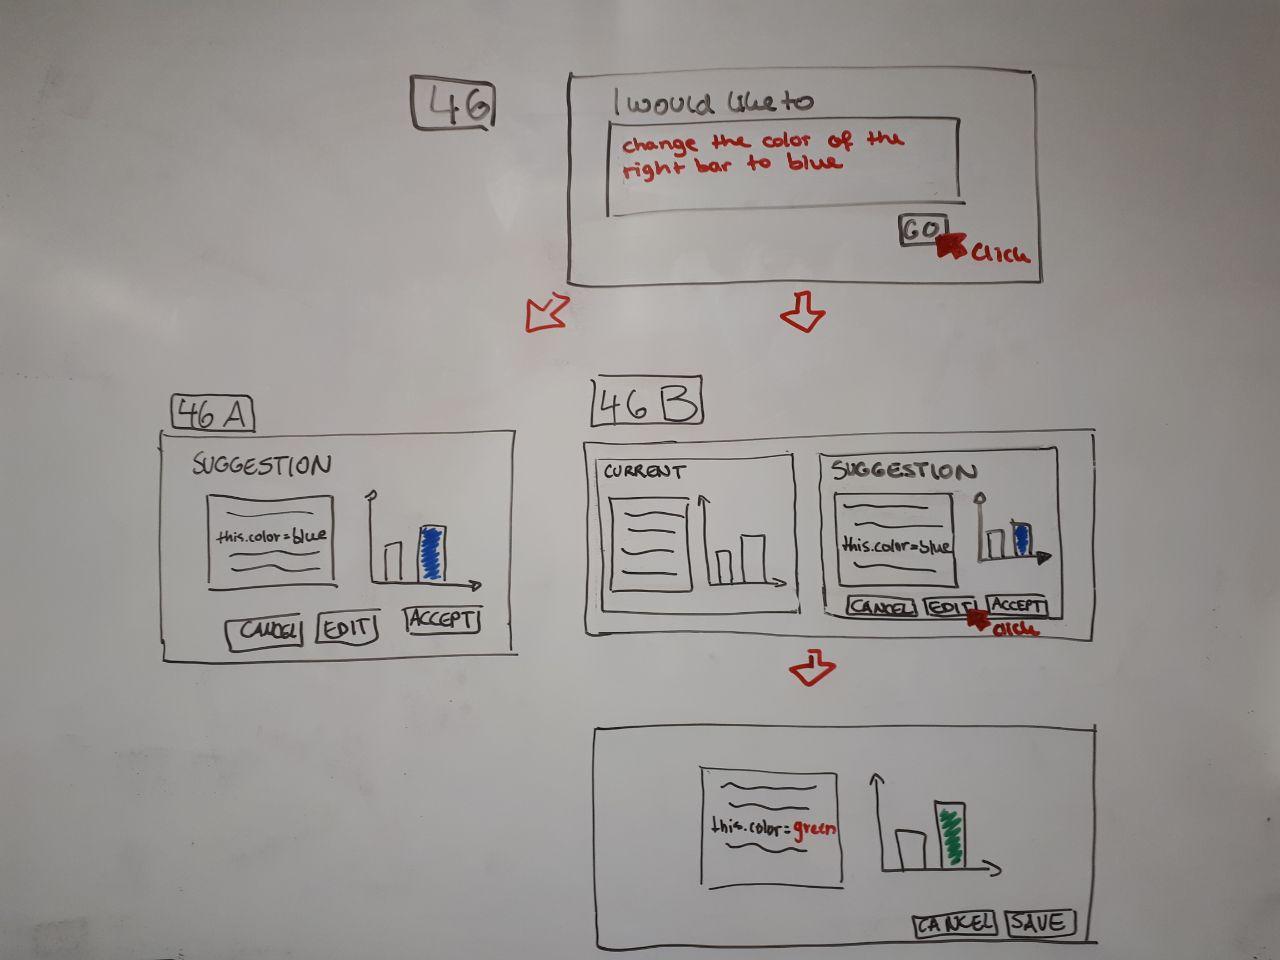 46
I would like to
change the color of the
right bar to blue
GO
click
46 A
SUGGESTION
this.color=blue
CANCEL
EDIT
ACCEPT
46 B
CURRENT
SUGGESTION
this.color=blue
CANCEL
EDIT
ACCEPT
click
this.color=green
CANCEL
SAVE